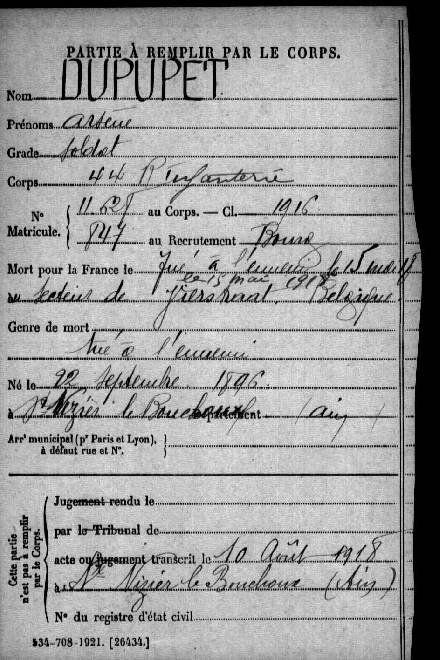 PARTIE À REMPLIR PAR LE CORPS.
Nom DUPUPET
Prénoms Arsène
Grade Soldat
Corps 44 R Infanterie
N° Matricule. { 1168 au Corps. — Cl. 1916
847 au Recrutement Bourg
Mort pour la France le Tué à l'ennemi le 15 mai 18
le 15 mai 1918
au secteur de Belgique
Genre de mort
tué à l'ennemi
Né le 22 Septembre 1896
à St Nizier le Bouchoux Département (Ain)
Arrt municipal (pr Paris et Lyon), à défaut rue et N°.
Cette partie n'est pas à remplir par le Corps.
Jugement rendu le
par le Tribunal de
acte ou jugement transcrit le 10 Août 1918
à St Nizier le Bouchoux (Ain)
N° du registre d'état civil
534-708-1921. [26434.]